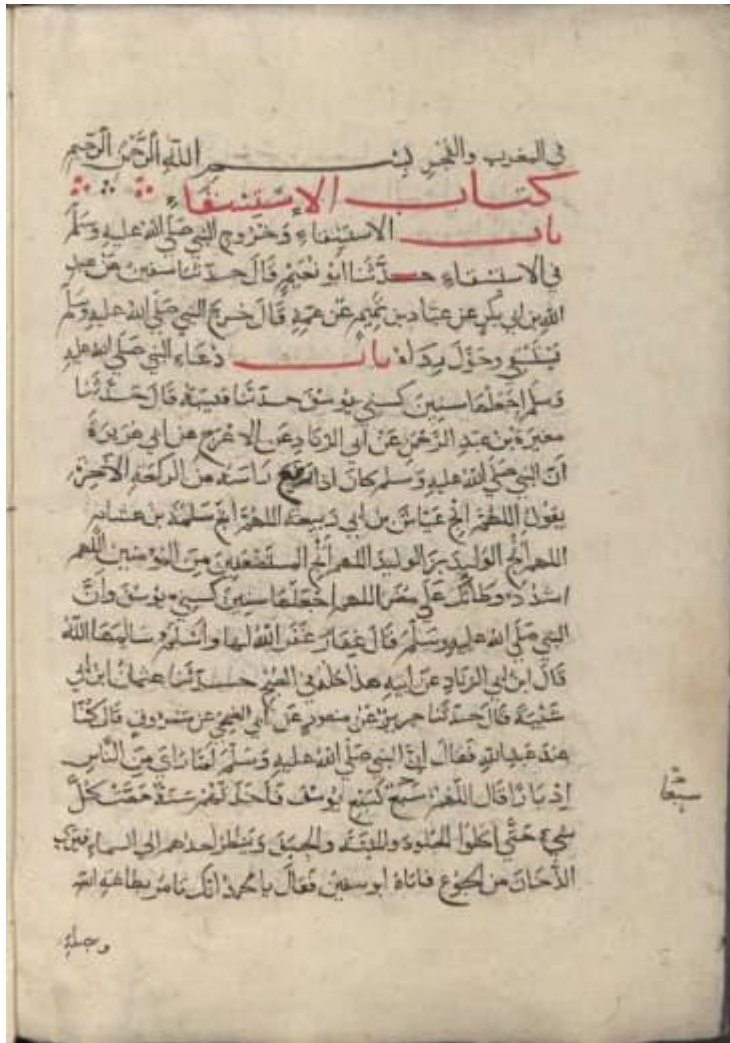 في المغرب والفجر بسم الله الرحمن الرحيم
كتاب الاستسقاء
باب الاستسقاء وخروج النبي صلى الله عليه وسلم
في الاستسقاء حدثنا ابو نعيم قال حدثنا سفين عن عبد
الله بن ابي بكر عن عباد بن تميم عن عمه قال خرج النبي صلى الله عليه وسلم
يستسقي وحول رداه باب دعاء النبي صلى الله عليه
وسلم اجعلها سنين كسني يوسف حدثنا قتيبة قال حدثنا
مغيرة بن عبد الرحمن عن ابي الزناد عن الاعرج عن ابي هريرة
ان النبي صلى الله عليه وسلم كان اذا رفع راسه من الركعة الاخرة
يقول اللهم انج عياش بن ابي ربيعة اللهم انج سلمة بن هشام
اللهم انج الوليد بن الوليد اللهم انج المستضعفين من المومنين اللهم
اشدد وطاتك على مضر اللهم اجعلها سنين كسني يوسف وان
النبي صلى الله عليه وسلم قال غفار غفر الله لها واسلم سالمها الله
قال ابن ابي الزناد عن ابيه هذا كله في الصبح حدثنا عثمان ابن ابي
شيبة قال حدثنا جرير عن منصور عن ابي الضحى عن مسروق قال كنا
عند عبد الله فقال ان النبي صلى الله عليه وسلم لما راى من الناس
ادبارا قال اللهم سبع كسبع يوسف فاخذتهم سنة حصت كل
شيء حتى اكلوا الجلود والميتة والجيف وينظر احدهم الى السماء فيرى
الدخان من الجوع فاتاه ابو سفين فقال يا محمد انك تامر بطاعة الله
سبعا
وبصلة